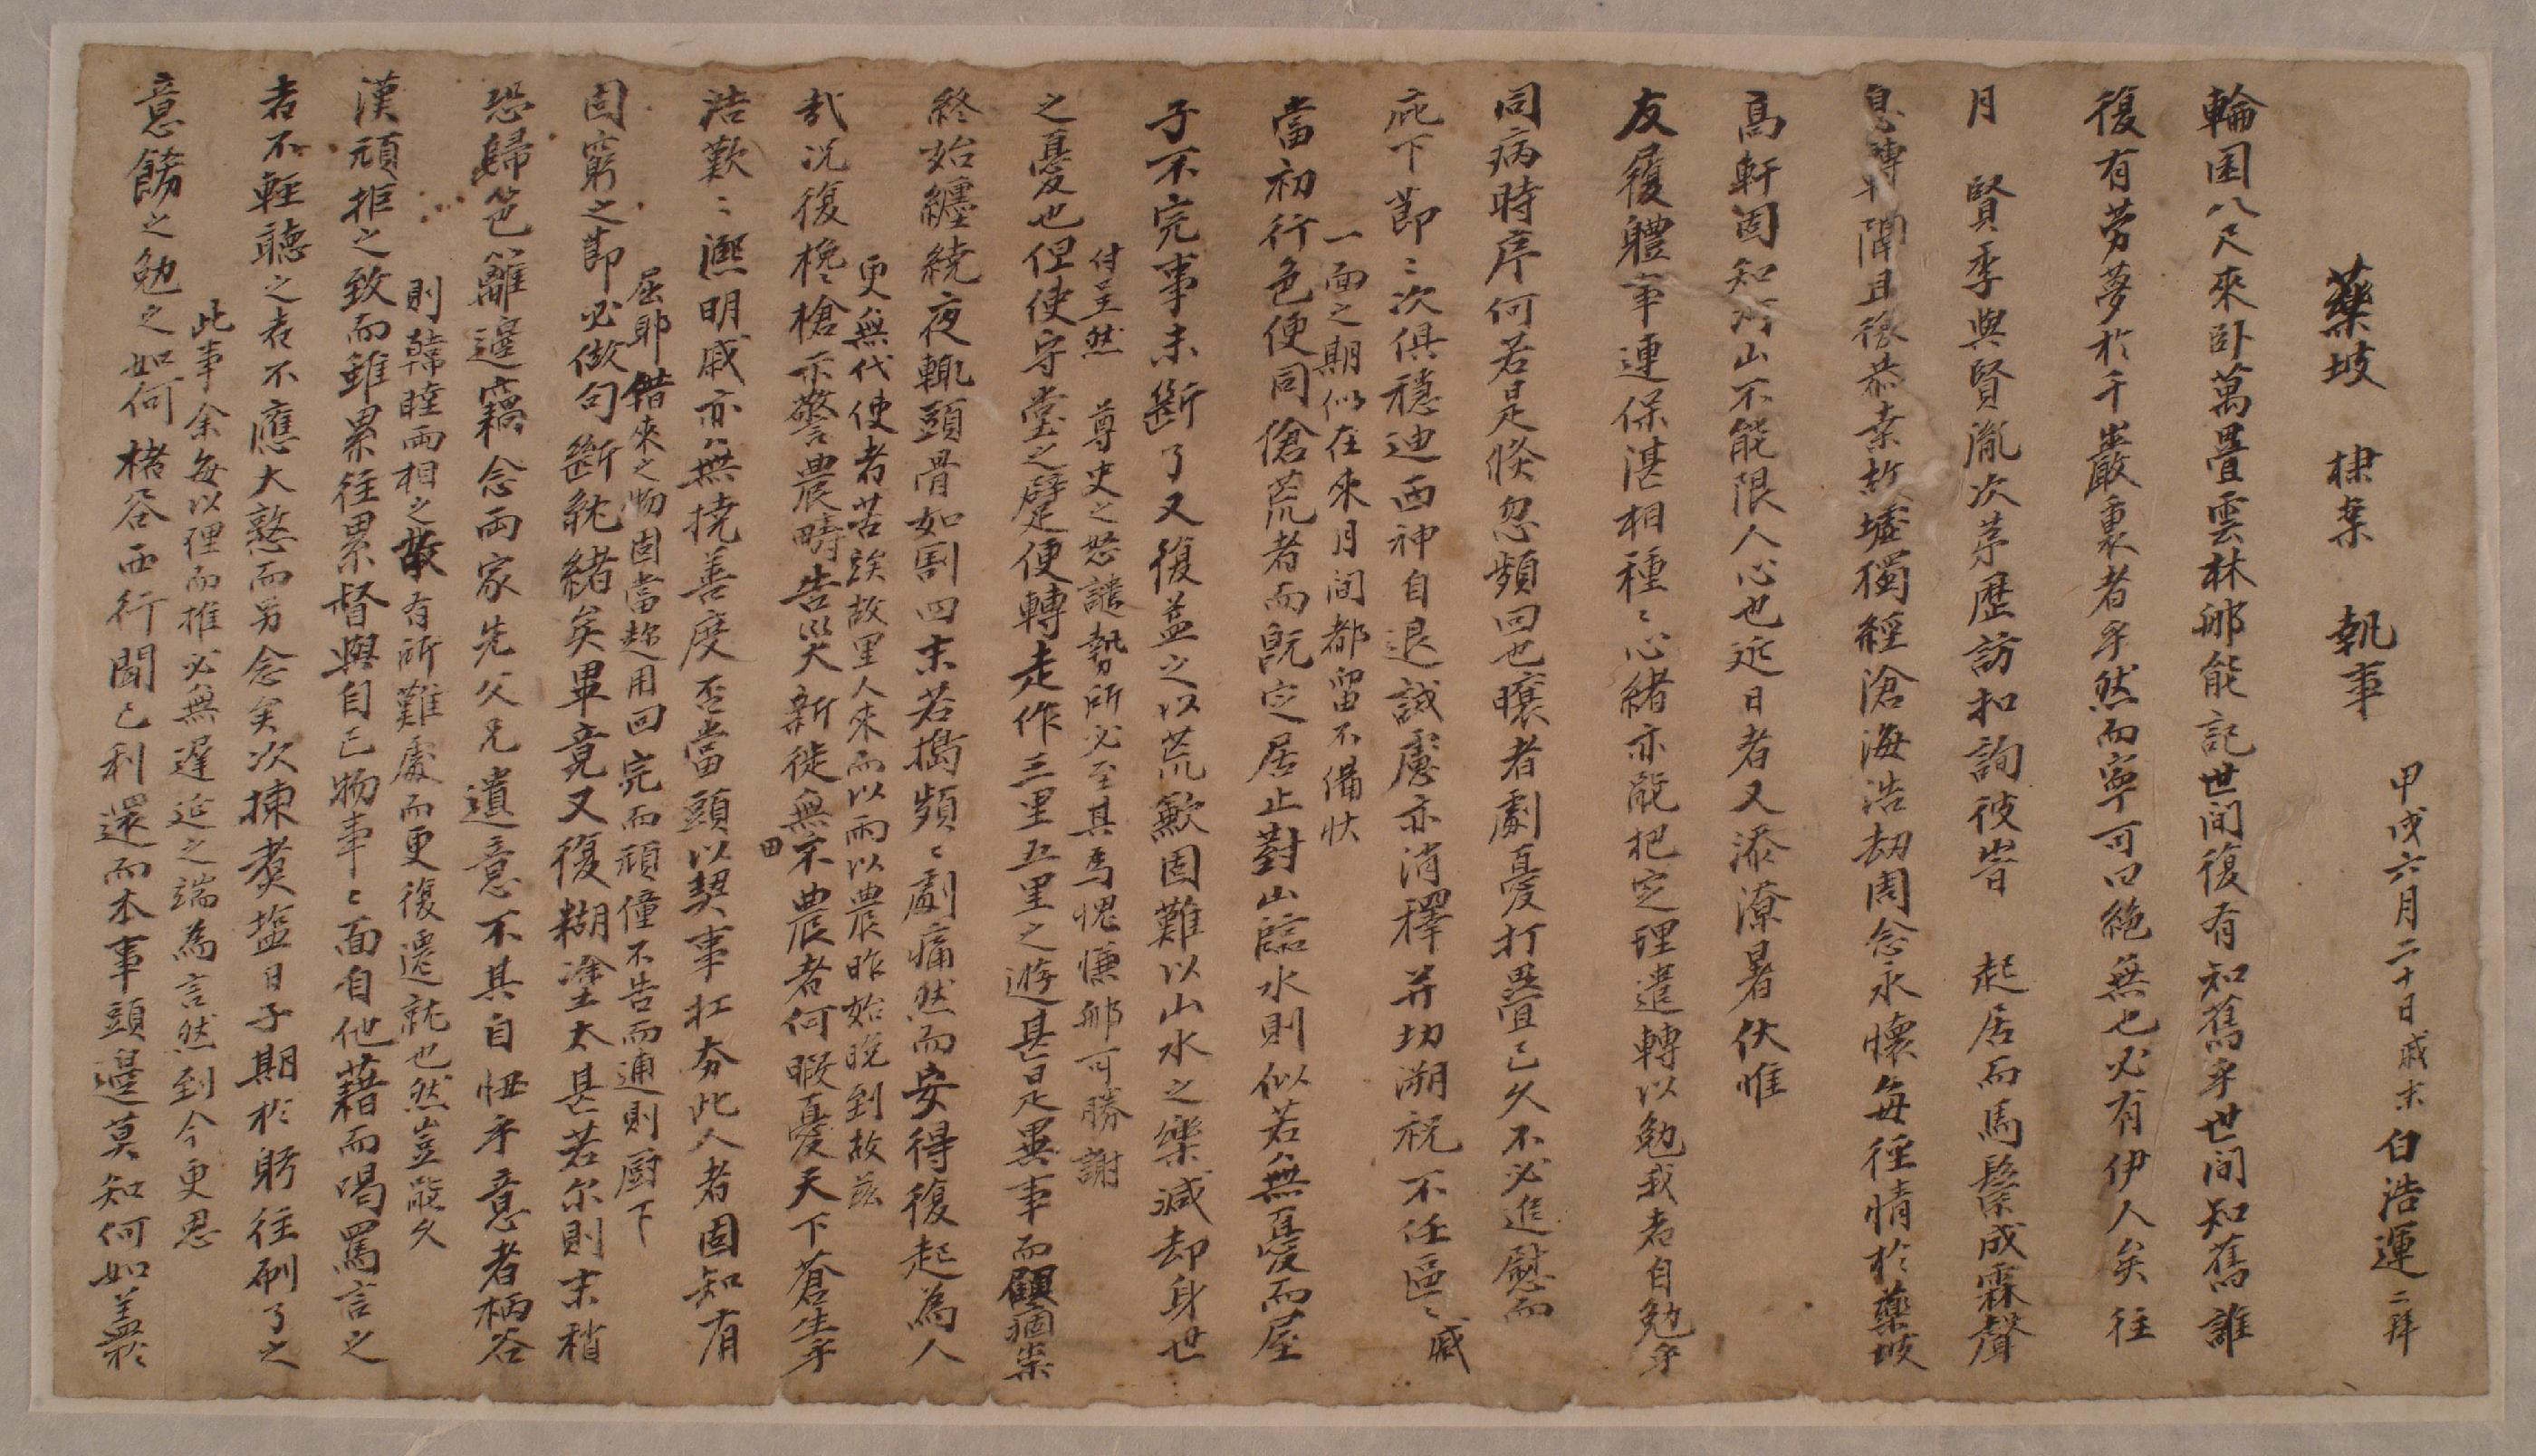 藥坡 棣案 執事
甲戌六月二十日戚末白浩運二拜
輪囷八尺來臥萬疊雲林那能記世间復有知舊乎世间知舊誰
復有勞夢於千巖裏者乎然而寧可曰絶無也必有伊人矣往
月 賢季與賢胤次苐歷訪扣詢彼崥 起居而馬鬃成霖聲
息轉闊且後恭案故墟獨經滄海浩劫周念永懷每徑情於藥坡
高軒固知河山不能限人心也近日者又添潦暑伏惟
友履軆事連保湛相種〻心緒亦能把定理遣轉以勉我者自勉乎
同病時序何若是倏忽頻回也曩者劇憂打疊已久不必進慰而
庇下節〻次俱穩迪西神自退誠慮亦消釋并切溯祝不任區〻戚
一面之期似在來月间都留不備狀
當初行色便同傖荒者而旣定居止對山臨水則似若無憂而屋
子不完事未斷了又復益之以荒歉固難以山水之樂減却身世
付呈然 尊史之怒譴勢所必至其爲愧慊那可勝謝
之憂也但使守堂之躄便轉走作三里五里之遊甚是異事而顧痼祟
終始纏繞夜輒頭骨如割四末若搗頻〻劇痛然而安得復起為人
更無代使者苦埃故里人來而以雨以農昨始晚到故玆
哉况復欃槍示警農疇告災新徒無田不農者何暇憂天下蒼生乎
浩歎〻凞明戚亦無撓善度否當頭以契事扛夯此人者固知有
屈耶錯來之物固當趂用回完而頑僮不告而逋則厨下
固窮之節必做句斷統緖矣畢竟又復糊塗太甚若尔則末稍
恐歸笆籬邊竊念兩家先父兄遺意不其自忸乎意者柄谷
則韓睦兩相之敬有所難處而更復遷就也然豈能久
漢頑拒之致而雖累往累督與自己物事〻面自他藉而喝罵言之
者不輕聽之者不應大憝而另念矣次揀煑塩日子期於躬往刷了之
此事余每以理而推必無遅延之端為言然到今更思
意餙之勉之如何楮谷西行聞已利還而本事頭邊莫知何如羕於